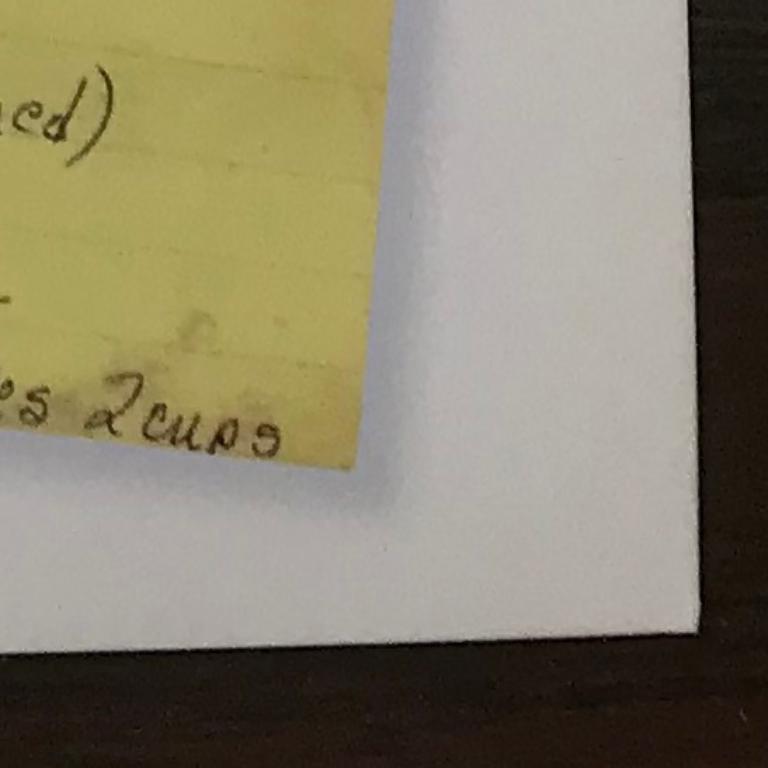 ed)
es 2 cups